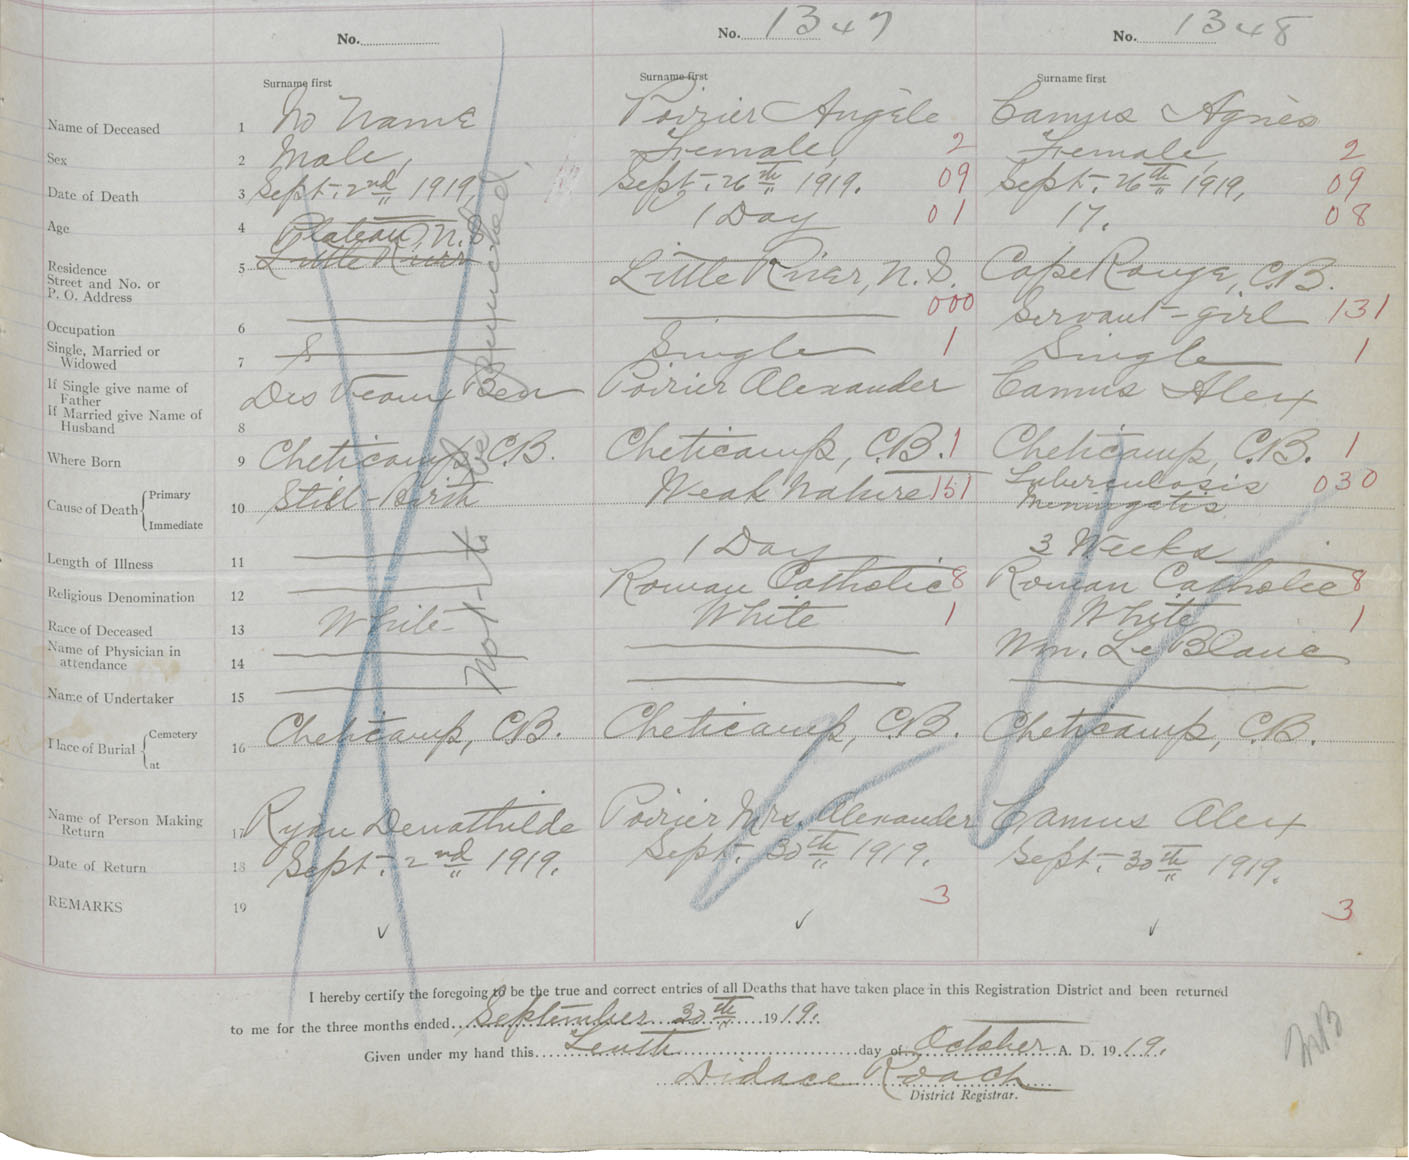 No. 1347 No. 1348
Surname first Surname first Surname first
Name of Deceased 1 No Name Poirier Angèle Camus Agnès
Sex 2 Male, Female, 2 Female, 2
Date of Death 3 Sept. 2nd 1919, Sept. 26th 1919. 09 Sept. 26th 1919, 09
Age 4 1 Day 01 17. 08
Plateau, N.S.
Residence Street and No. or P. O. Address 5 Little River Little River, N.S. Cape Rouge, C.B.
Occupation 6 000 Servant-girl 131
Single, Married or Widowed 7 S Single 1 Single 1
If Single give name of Father
If Married give Name of Husband 8 Des Veaux Ben Poirier Alexander Camus Alex
Where Born 9 Cheticamp, C.B. Cheticamp, C.B. 1 Cheticamp, C.B. 1
Cause of Death { Primary Immediate 10 Still-Birth Weak Nature 151 Tuberculosis Meningatis 030
Length of Illness 11 1 Day 3 Weeks
Religious Denomination 12 Roman Catholic 8 Roman Catholic 8
Race of Deceased 13 White White 1 White 1
Name of Physician in attendance 14 Wm. LeBlanc
Name of Undertaker 15
Place of Burial { Cemetery at 16 Cheticamp, C.B. Cheticamp, C.B. Cheticamp, C.B.
Name of Person Making Return 17 Ryan Denathilde Poirier Mrs. Alexander Camus Alex
Date of Return 18 Sept. 2nd 1919. Sept. 30th 1919. Sept. 30th 1919.
REMARKS 19 3 3
Not to be Punched
I hereby certify the foregoing to be the true and correct entries of all Deaths that have taken place in this Registration District and been returned
to me for the three months ended September 30th 1919.
Given under my hand this Tenth day of October A. D. 1919.
Didace Roach
District Registrar.